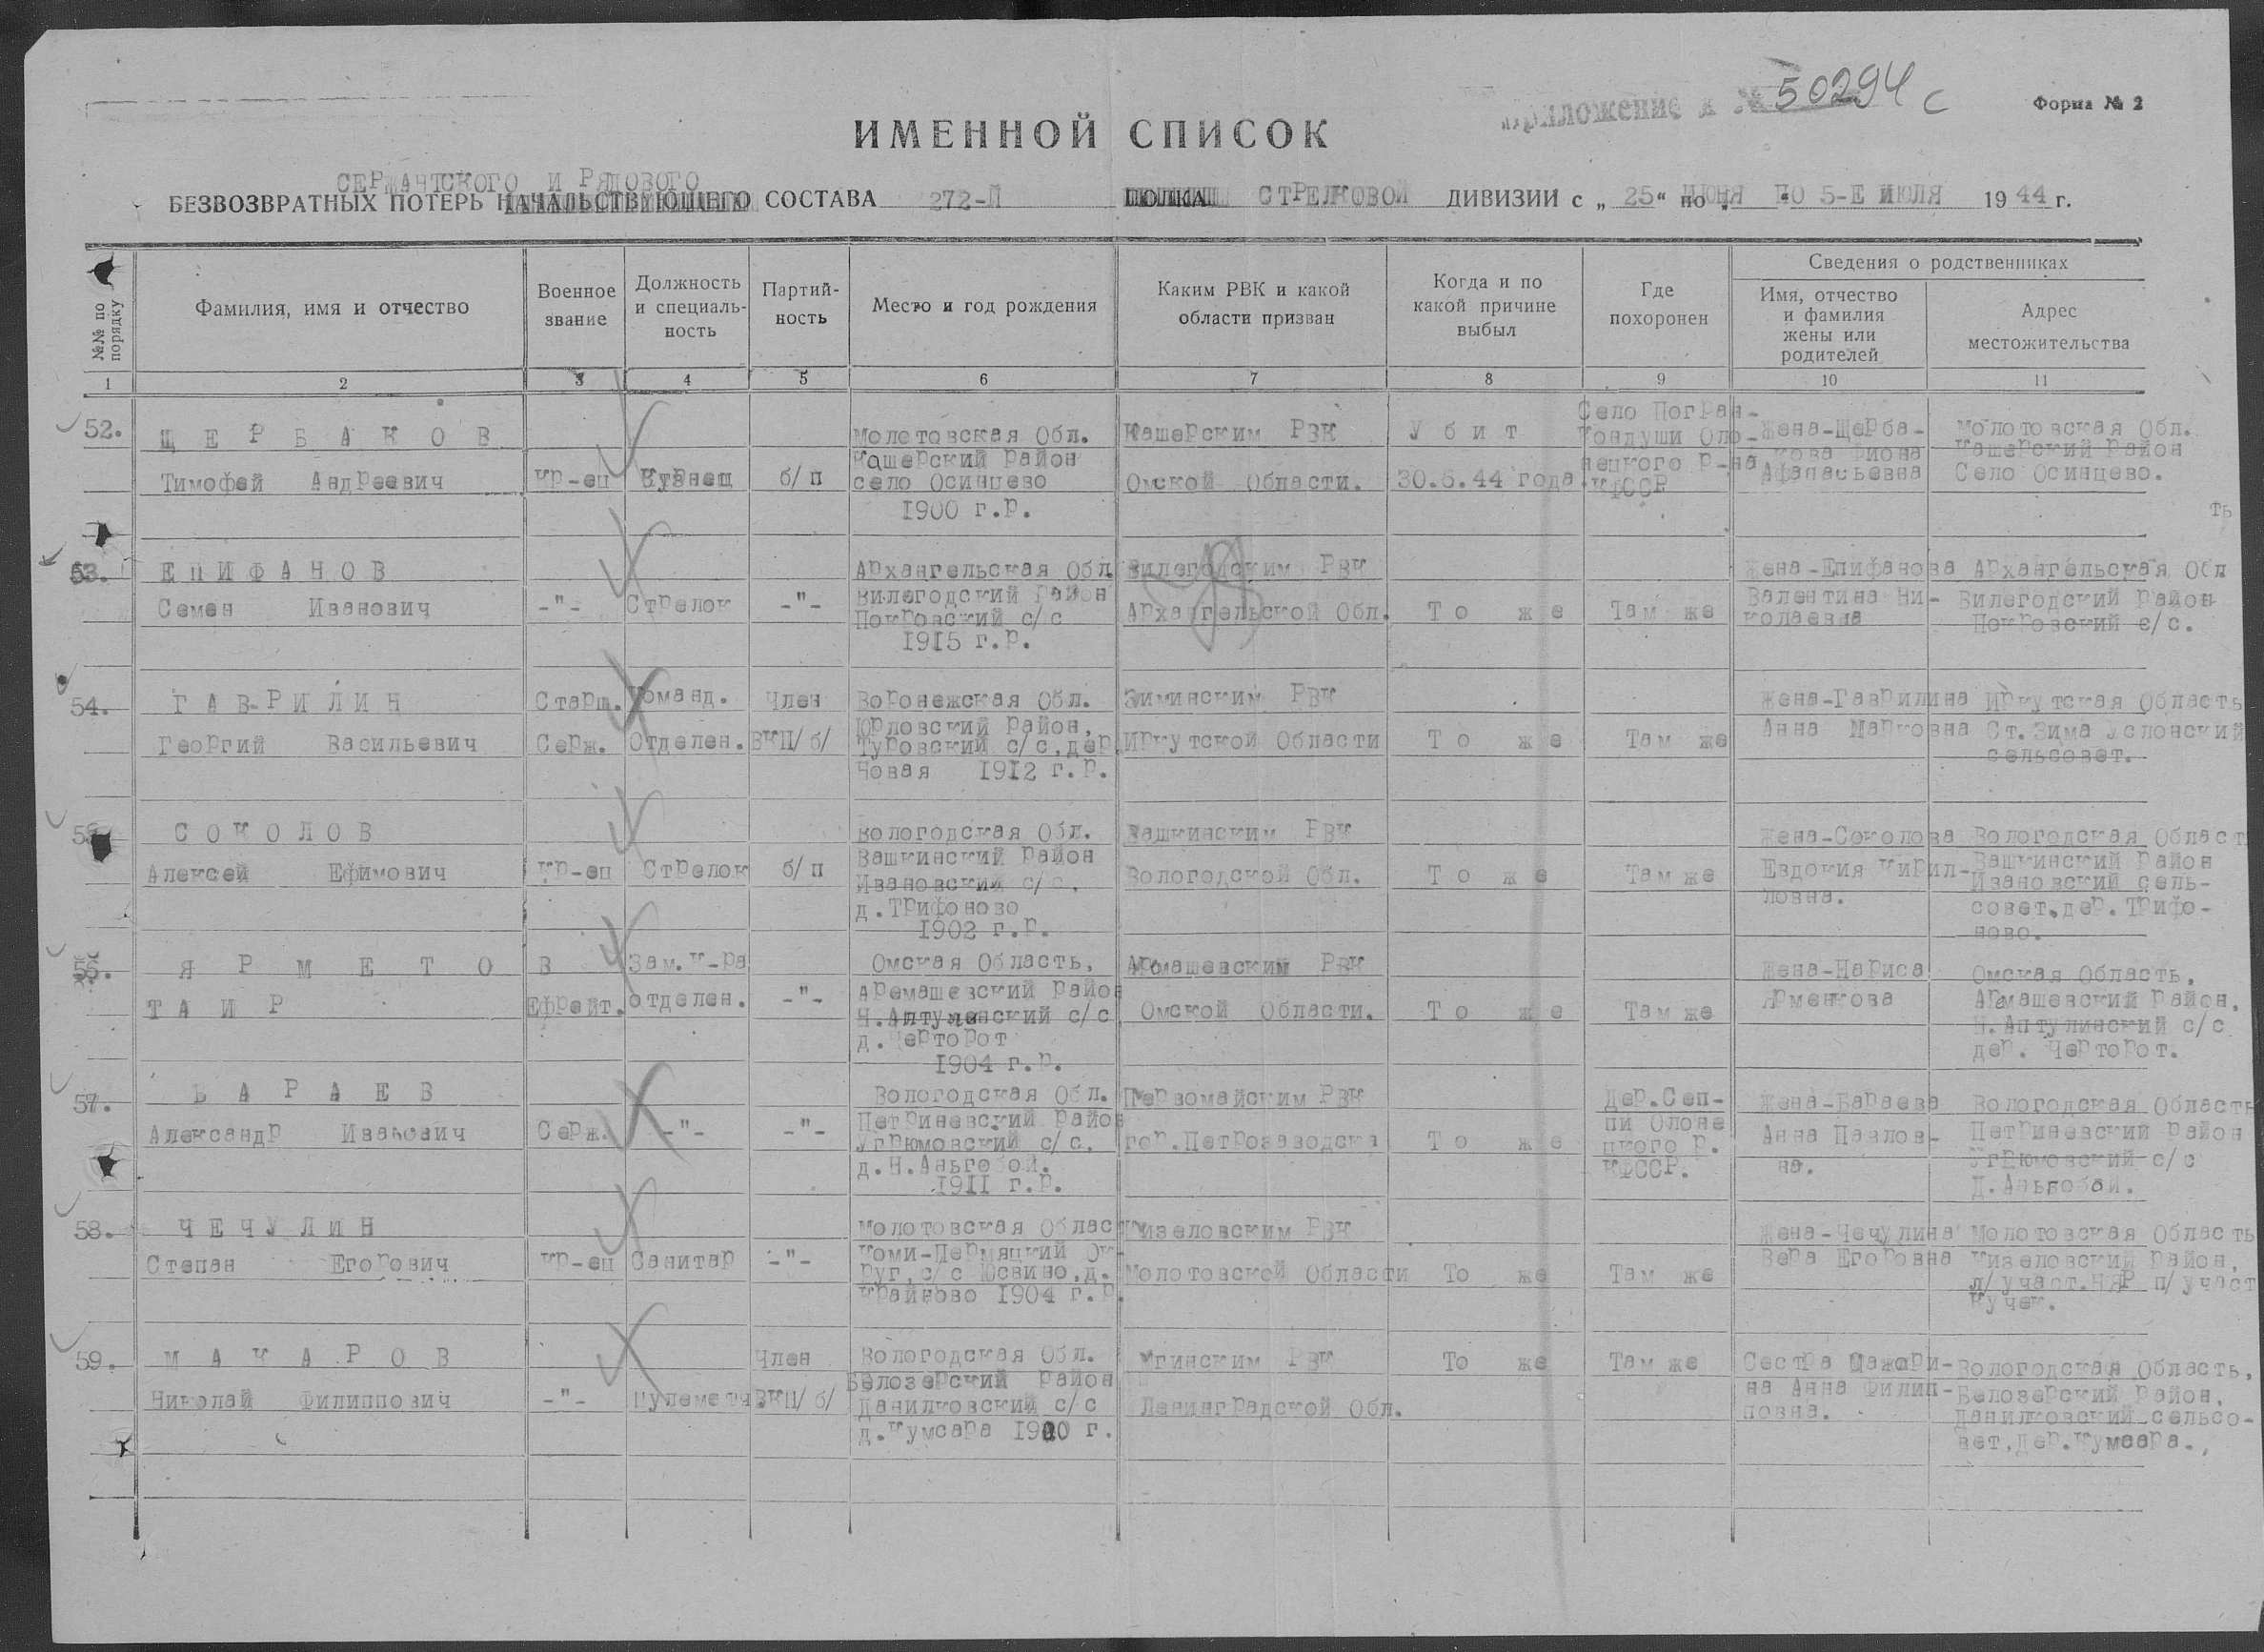 Приложение к № 50294 с
Форма № 2
ИМЕННОЙ СПИСОК
СЕРЖАНТСКОГО И РЯДОВОГО
БЕЗВОЗВРАТНЫХ ПОТЕРЬ НАЧАЛЬСТВУЮЩЕГО СОСТАВА 272-Й ПОЛКА СТРЕЛКОВОЙ ДИВИЗИИ с „ 25 “ по ИЮНЯ ПО 5-Е ИЮЛЯ 19 44 г.
№№ по порядку
Фамилия, имя и отчество
Военное звание
Должность и специаль-ность
Партий-ность
Место и год рождения
Каким РВК и какой области призван
Когда и по какой причине выбыл
Где похоронен
Сведения о родственниках
Имя, отчество и фамилия жены или родителей
Адрес местожительства
1 2 3 4 5 6 7 8 9 10 11
52.
ЩЕРБАКОВ
Тимофей Андреевич
кр-ец
Кузнец
б/п
Молотовская Обл.
Кашерский Район
село Осинцево
1900 г.р.
Кашерским РВК
Омской Области.
Убит
30.6.44 года
Село Погран-
Кондуши Оло-
нецкого р-на
КФССР
Жена-Щерба-
кова Фиона
Афанасьевна
Молотовская Обл.
Кашерский Район
Село Осинцево.
ть
53.
ЕПИФАНОВ
Семен Иванович
-"-
Стрелок
-"-
Архангельская Обл
Вилегодский Район
Покровский с/с
1915 г.р.
Вилегодским РВК
Архангельской Обл.
То же
Там же
Жена-Епифанова
Валентина Ни-
колаевна
Архангельская Обл
Вилегодский Район
Покровский с/с.
54.
ГАВРИЛИН
Георгий Васильевич
Старш.
Серж.
Команд.
Отделен.
Член
ВКП/б/
Воронежская Обл.
Юрловский Район,
Туровский с/с, дер.
Новая 1912 г.р.
Зиминским РВК
Иркутской Области
То же
Там же
Жена-Гаврилина
Анна Марковна
Иркутская Область
Ст.Зима Услонский
сельсовет.
СОКОЛОВ
Алексей Ефимович
кр-ец
Стрелок
б/п
Вологодская Обл.
Вашкинский Район
Ивановский с/с.
д.Трифоново
1902 г.р.
Вашкинским РВК
Вологодской Обл.
То же
Там же
Жена-Соколова
Евдокия Кирил-
ловна.
Вологодская Област
Вашкинский Район
Ивановский сель-
совет,дер.Трифо-
ново.
ЯРМЕТОВ
ТАИР
Ефрейт.
Зам.к-ра
отделен.
-"-
Омская Область,
Аремашевский Район
Н.Аптулинский с/с
д.Черторот
1904 г.р.
Армашевским РВК
Омской Области.
То же
Там же
Жена-Нариса
Ярменкова
Омская Область.
Армашевский Район,
Н.Аптулинский с/с
дер. Черторот.
57.
БАРАЕВ
Александр Иванович
Серж.
-"-
-"-
Вологодская Обл.
Петриневский Район
Угрюмовский с/с.
д.Н.Аньгобой.
1911 г.р.
Первомайским РВК
гор.Петрозаводска
То же
Дер.Сеп-
пи Олоне
цкого р.
КФССР.
Жена-Бараева
Анна Павлов-
на.
Вологодская Область
Петриневский Район
Угрюмовский с/с
Д.Аньгобой.
58.
ЧЕЧУЛИН
Степан Егорович
кр-ец
Санитар
-"-
Молотовская Област
Коми-Пермяцкий Ок-
руг,с/с Юсвино,д.
Крайново 1904 г.р.
Кизеловским РВК
Молотовской Области
То же
Там же
Жена-Чечулина
Вера Егоровна
Молотовская Область
Кизеловский Район,
л/участ.НЯР п/участ
Кучек.
59.
МАКАРОВ
Николай Филиппович
-"-
Пулеметч.
Член
ВКП/б/
Вологодская Обл.
Белозерский Район
Данилковский с/с
д.Кумсара 1900 г.
Мгинским РВК
Ленинградской Обл.
То же
Там же
Сестра
на Анна Филип-
повна.
Вологодская Область,
Белозерский Район,
Данилковский сельсо-
вет,дер.Кумсара.